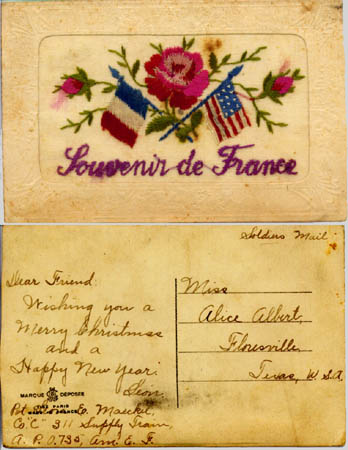 Souvenir de France
Soldiers Mail
Dear Friend:
Wishing you a
Merry Christmas
and a
Happy New Year.
Leon
MARQUE DEPOSEE
PARIS
Pvt. Leon E. Mauckel
Co "C" 311 Supply Train,
A. P. O. 735, Am. E. F.
Miss
Alice Albert,
Floresville,
Texas, U.S.A.